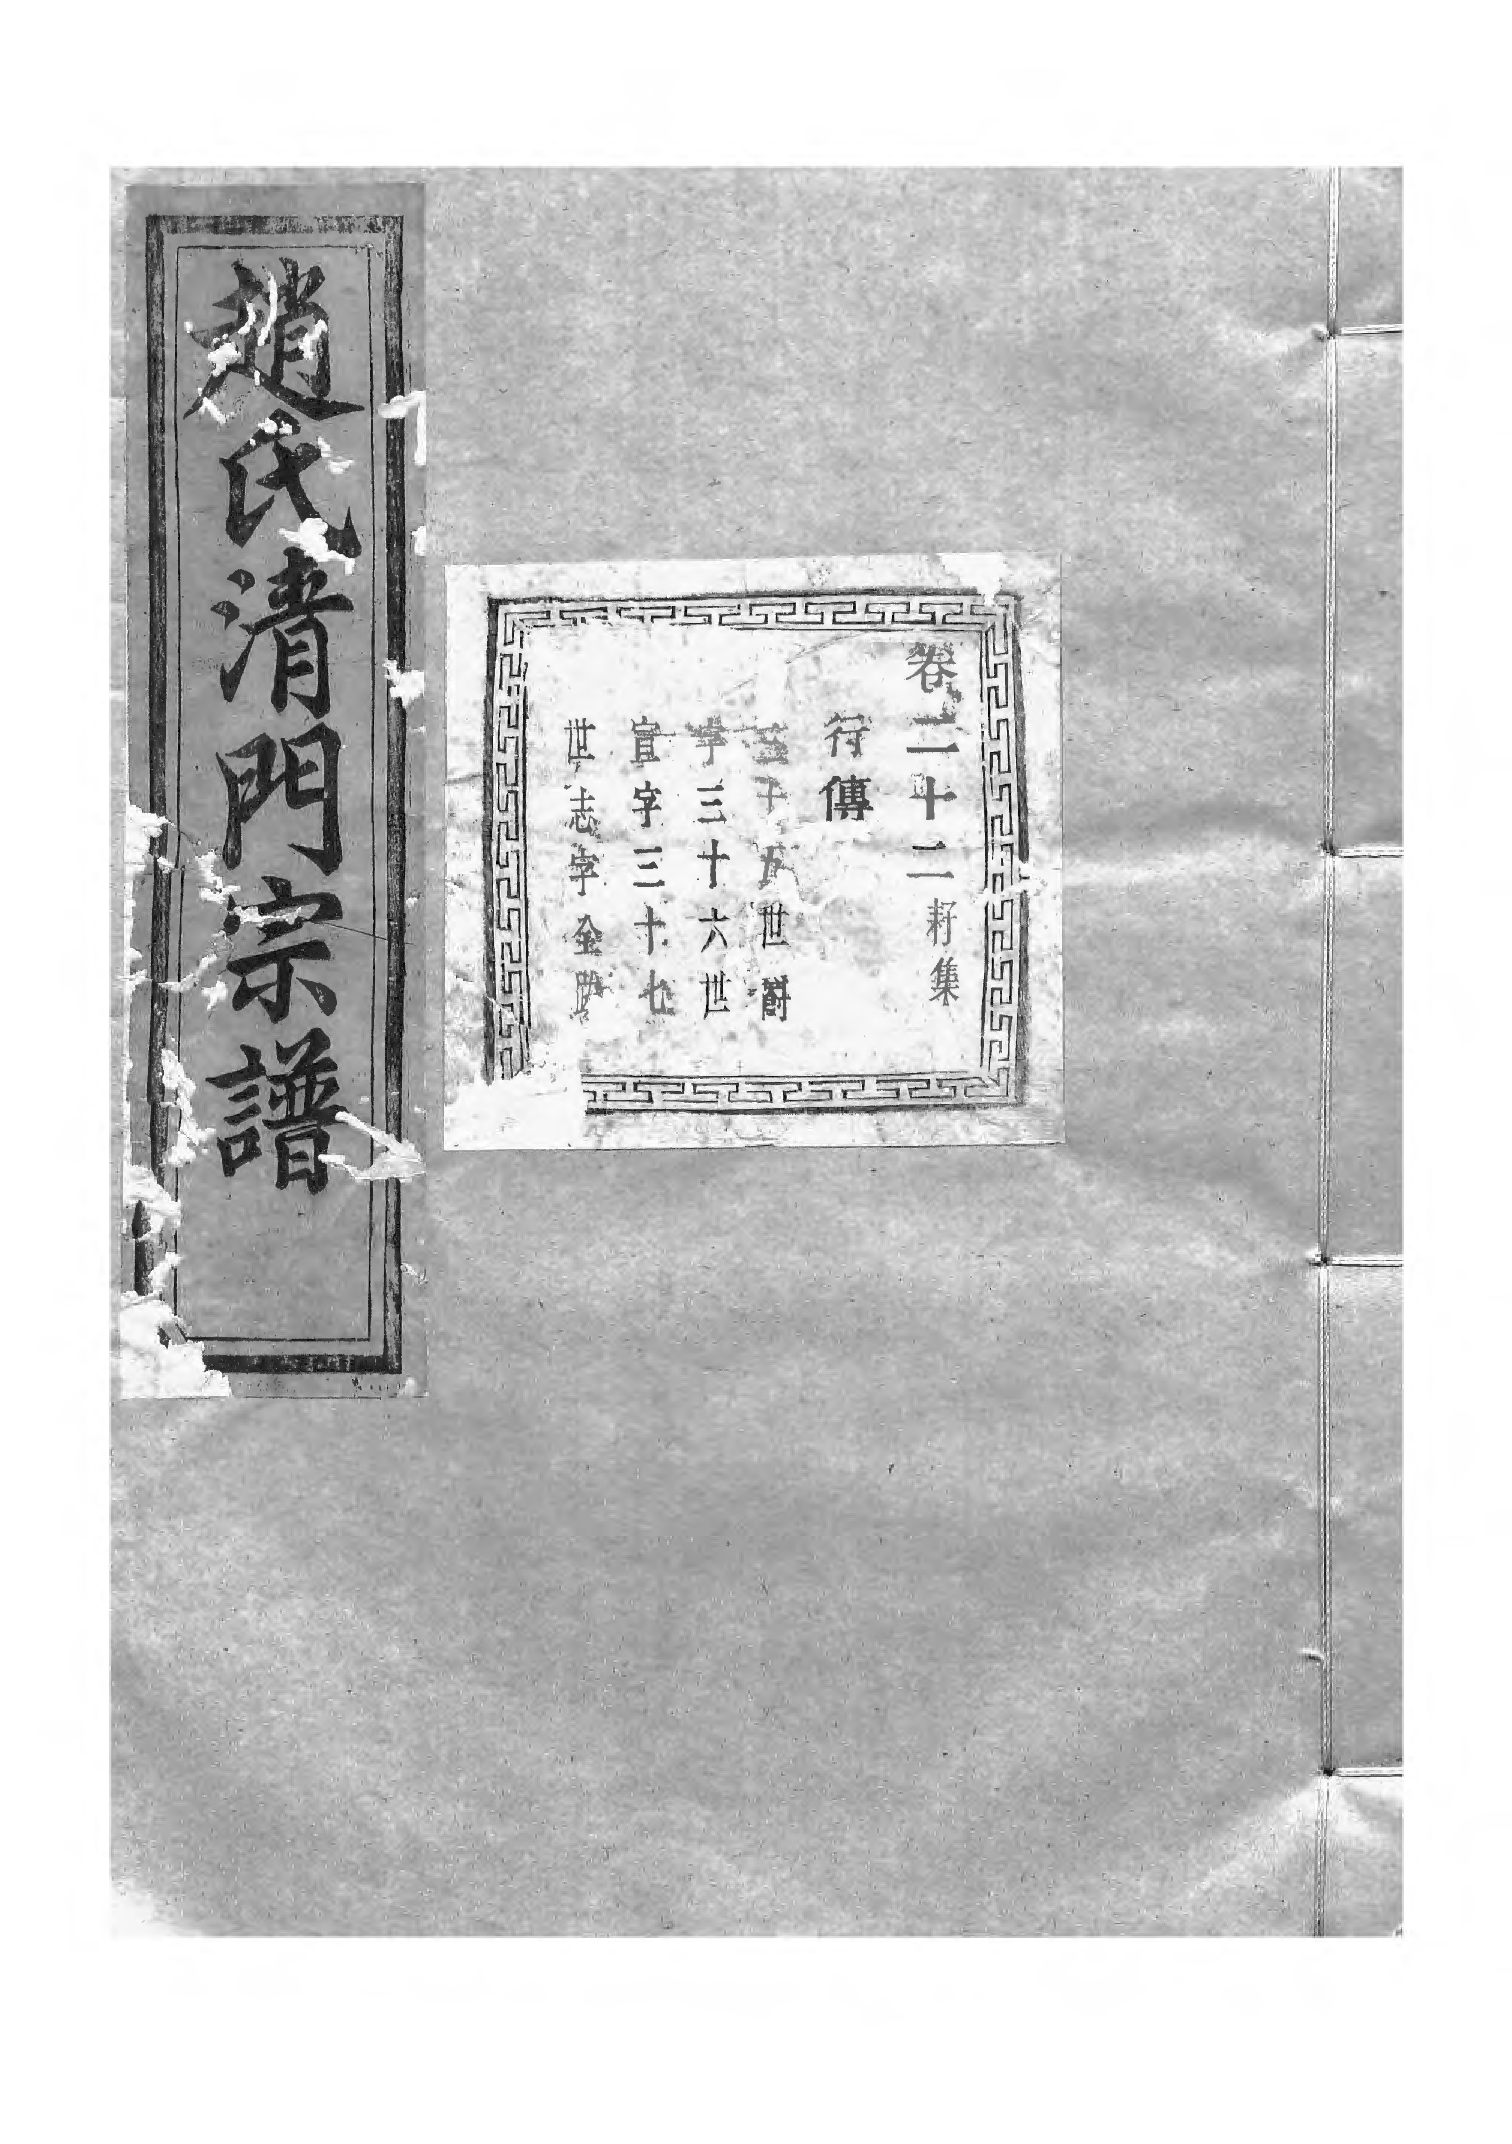 趙氏清門宗譜
卷二十二耔集
行傳
三十五世爵
字三十六世
宣字三十七
世志字